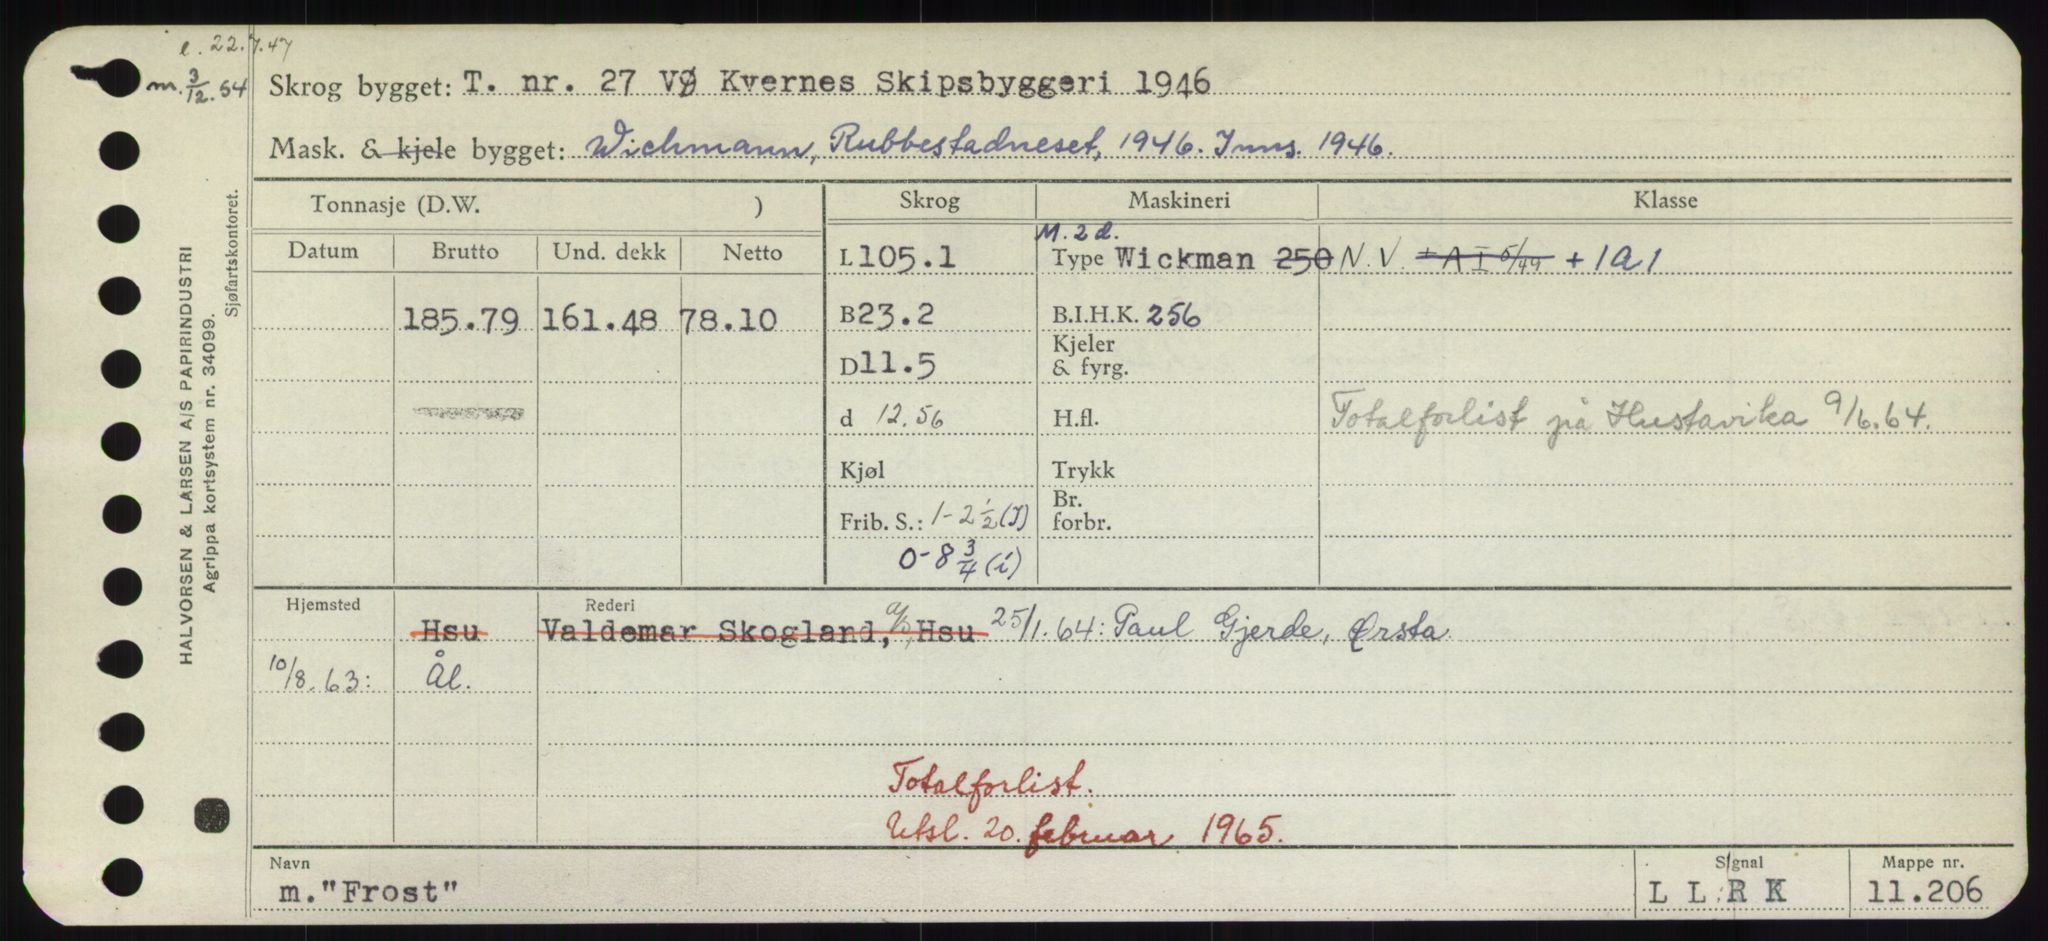 e. 22.7.47
m. 3/12.54
Skrog bygget: T. nr. 27 VØ Kvernes Skipsbyggeri 1946
Mask. & kjele bygget: Wichmann, Rubbestadneset, 1946. Inns. 1946.
Tonnasje (D.W. )
Skrog
Maskineri
Klasse
Datum
Brutto
Und. dekk
Netto
L 105.1
M. 2 d.
Type Wickman 250
N. V. + A I 5/49 + 1A1
185.79
161.48
78.10
B 23.2
B.I.H.K. 256
D 11.5
Kjeler
& fyrg.
d 12.56
H.fl.
Totalforlist på Hustavika 9/6.64.
Kjøl
Trykk
Frib. S.: 1-2 1/2 (T)
Br.
forbr.
0-8 3/4 (i)
Hjemsted
Rederi
Hsu
Valdemar Skogland, a/s, Hsu 25/1.64: Paul Gjerde, Ørsta
10/8.63: Ål.
Totalforlist.
Utsl. 20. februar 1965.
Navn
m."Frost"
Signal
L L R K
Mappe nr.
11.206
HALVORSEN & LARSEN A/S PAPIRINDUSTRI
Agrippa kortsystem nr. 34099.
Sjøfartskontoret.